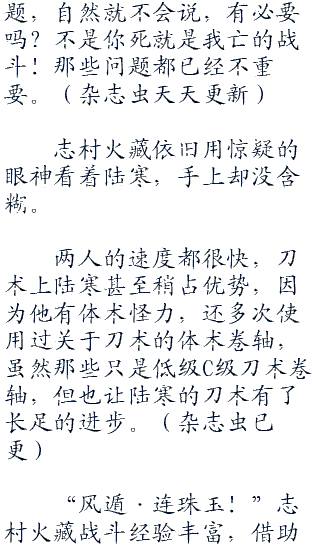 题，自然就不会说，有必要
吗？不是你死就是我亡的战
斗！那些问题都已经不重
要。（杂志虫天天更新）
志村火藏依旧用惊疑的
眼神看着陆寒，手上却没含
糊。
两人的速度都很快，刀
术上陆寒甚至稍占优势，因
为他有体术怪力，还多次使
用过关于刀术的体术卷轴，
虽然那些只是低级C级刀术卷
轴，但也让陆寒的刀术有了
长足的进步。（杂志虫已
更）
“风遁·连珠玉！”志
村火藏战斗经验丰富，借助